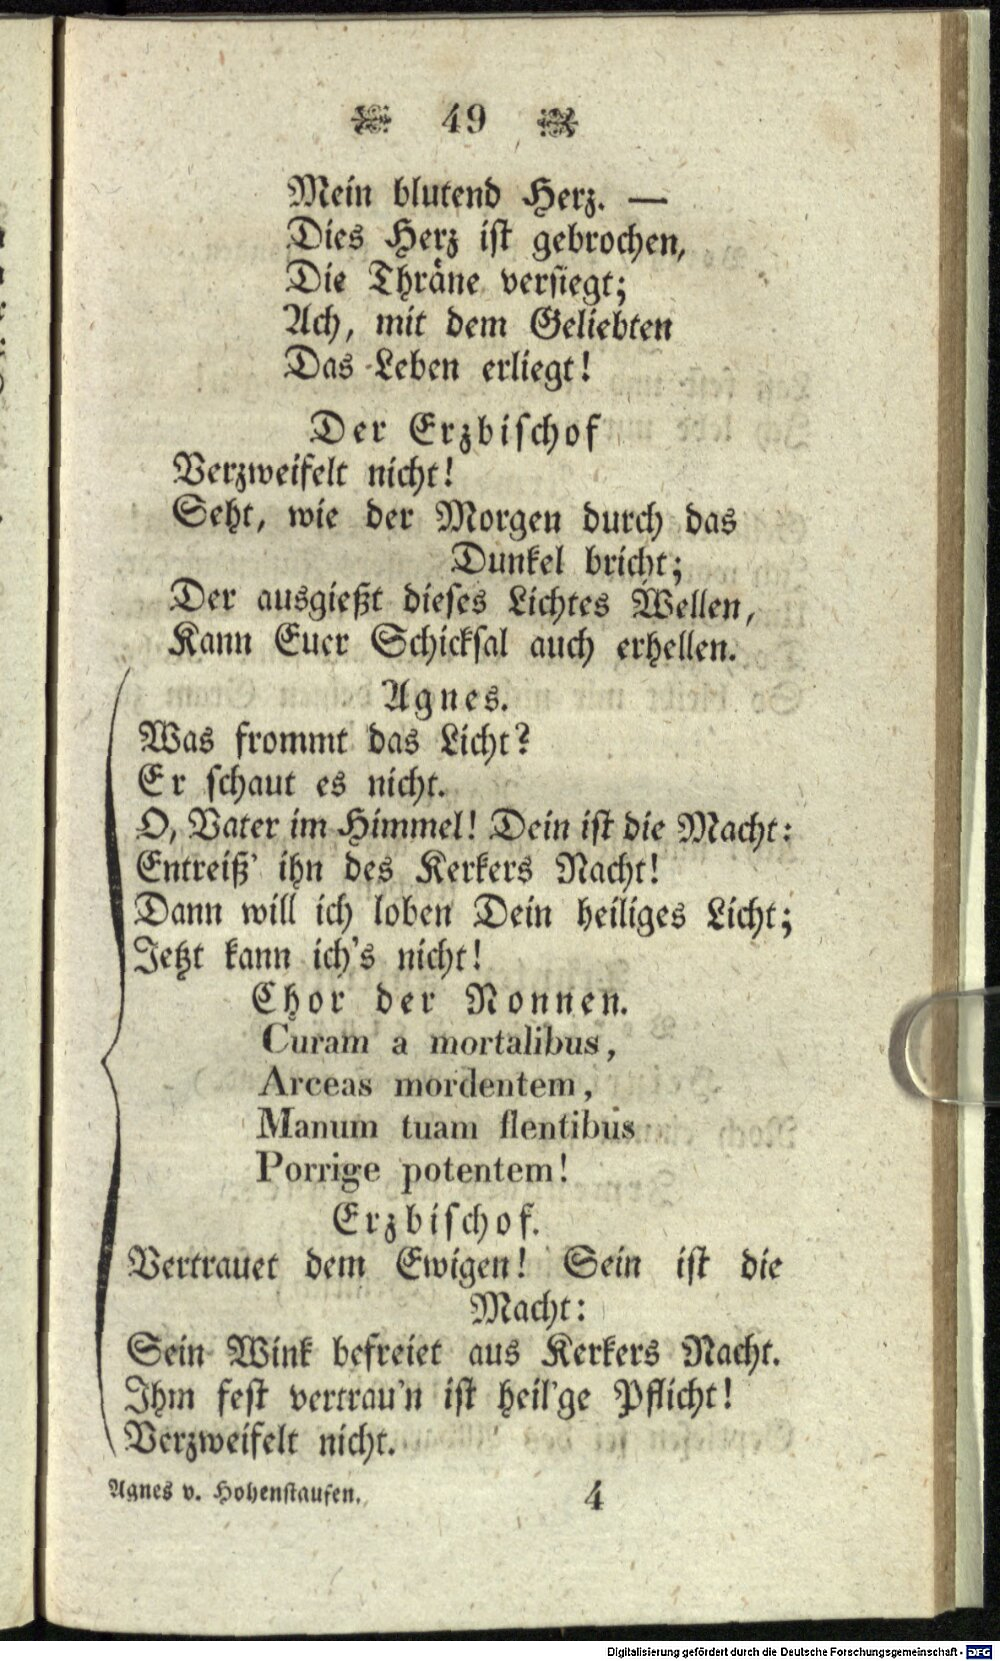 49
Mein blutend Herz. —
Dies Herz ist gebrochen,
Die Thräne versiegt;
Ach, mit dem Geliebten
Das Leben erliegt!
Der Erzbischof
Verzweifelt nicht!
Seht, wie der Morgen durch das
Dunkel bricht;
Der ausgießt dieses Lichtes Wellen,
Kann Euer Schicksal auch erhellen.
Agnes.
Was frommt das Licht?
Er schaut es nicht.
O, Vater im Himmel! Dein ist die Macht:
Entreiß' ihn des Kerkers Nacht!
Dann will ich loben Dein heiliges Licht;
Jetzt kann ich's nicht!
Chor der Nonnen.
Curam a mortalibus,
Arceas mordentem,
Manum tuam flentibus
Porrige potentem!
Erzbischof.
Vertrauet dem Ewigen! Sein ist die
Macht:
Sein Wink befreiet aus Kerkers Nacht.
Ihm fest vertrau'n ist heil'ge Pflicht!
Verzweifelt nicht.
Agnes v. Hohenstaufen. 4
Digitalisierung gefördert durch die Deutsche Forschungsgemeinschaft - DFG